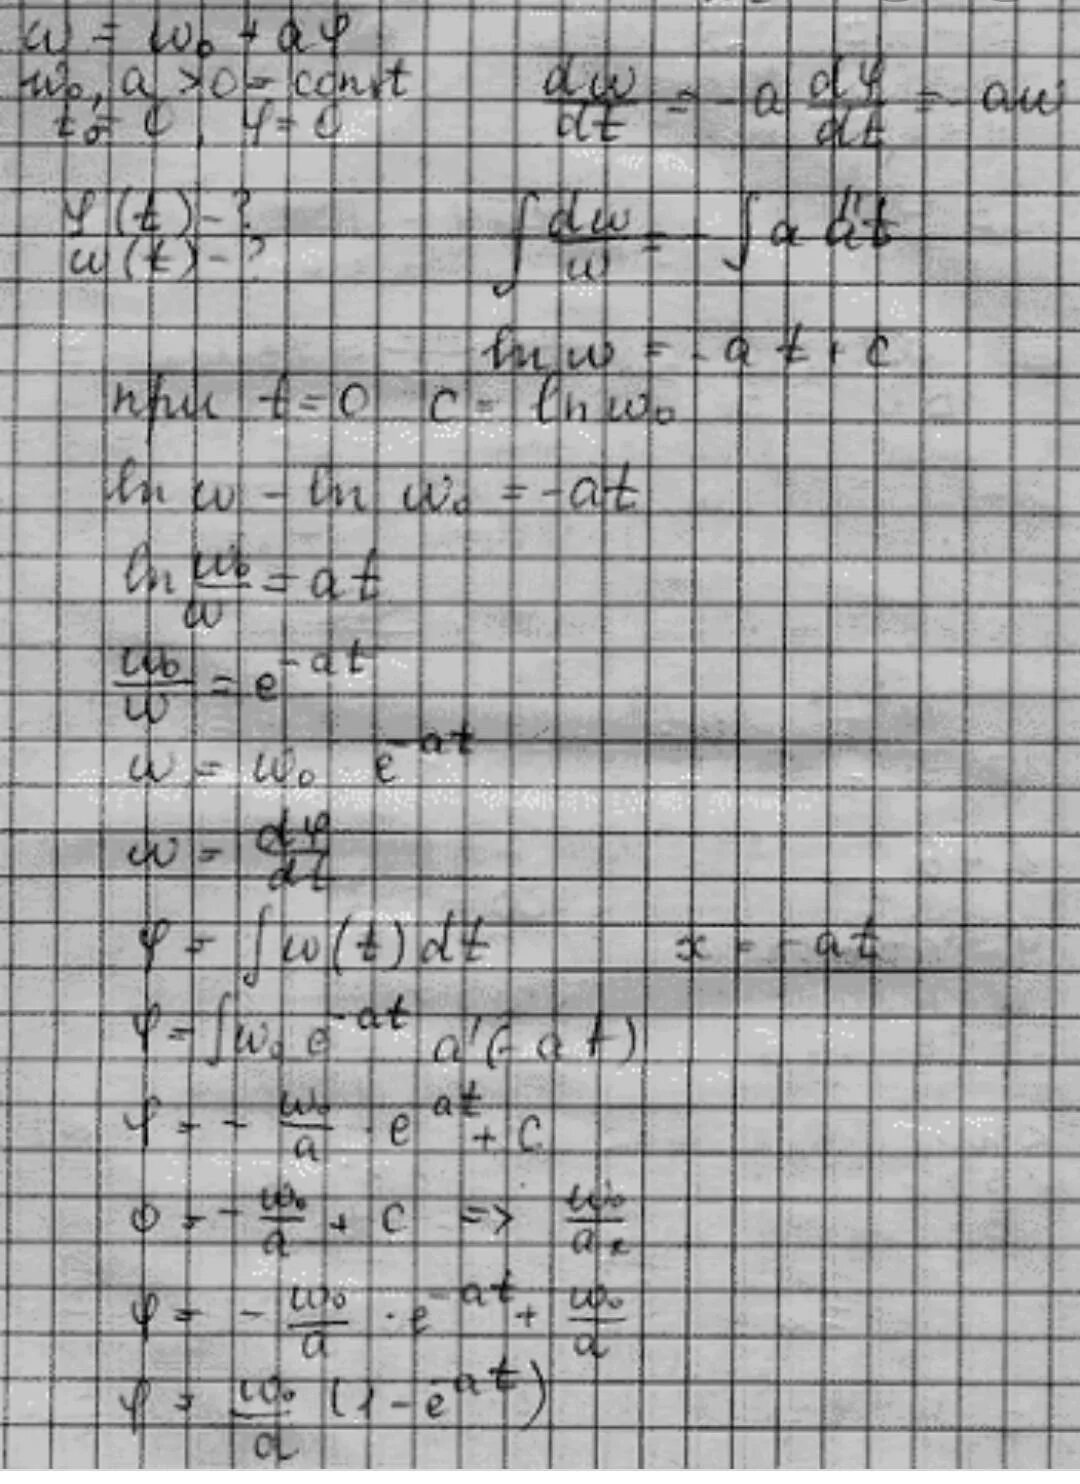 ω = ω₀ + aφ
ω₀, a > 0 = const
t₀ = 0, φ = 0
dω/dt = - a dφ/dt = - aω
φ(t) - ?
ω(t) - ?
∫ dω/ω = - ∫ a dt
ln ω = - a t + c
при t = 0 c = ln ω₀
ln ω - ln ω₀ = -at
ln ω₀/ω = at
ω₀/ω = e^(-at)
ω = ω₀ e^(-at)
ω = dφ/dt
φ = ∫ ω(t) dt
x = - at
φ = ∫ ω₀ e^(-at) d(-at)
φ = - ω₀/a · e^(-at) + C
0 = - ω₀/a + C => ω₀/a
φ = - ω₀/a · e^(-at) + ω₀/a
φ = ω₀/a (1 - e^(-at))